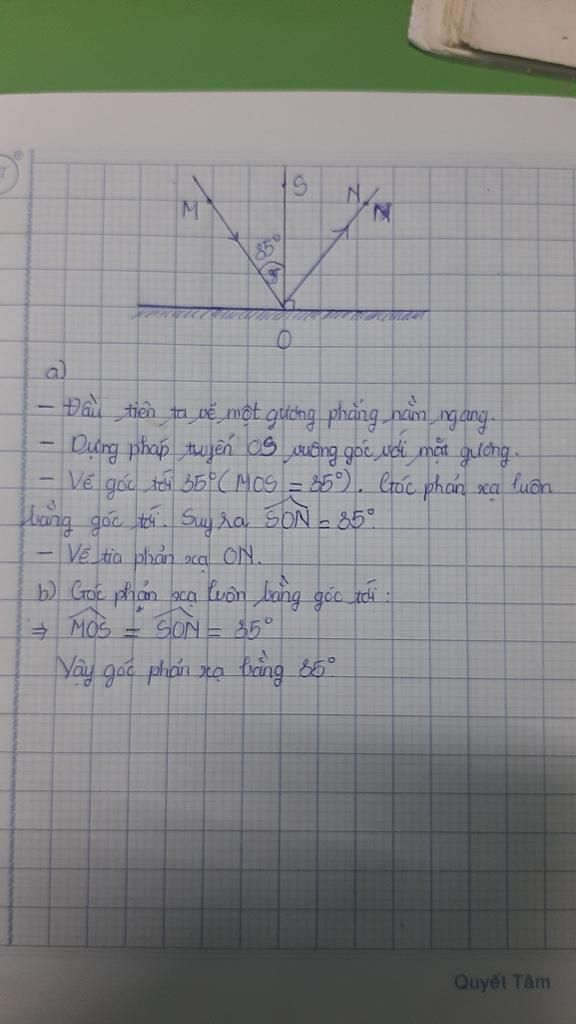 S
M
N
35°
O
a)
- Đầu tiên ta vẽ một gương phẳng nằm ngang.
- Dựng pháp tuyến OS vuông góc với mặt gương.
- Vẽ góc tới 35° (MOS = 35°). Góc phản xạ luôn
bằng góc tới. Suy ra SON = 35°
- Vẽ tia phản xạ ON.
b) Góc phản xạ luôn bằng góc tới:
⇒ MOS = SON = 35°
Vậy góc phản xạ bằng 35°
Quyết Tâm